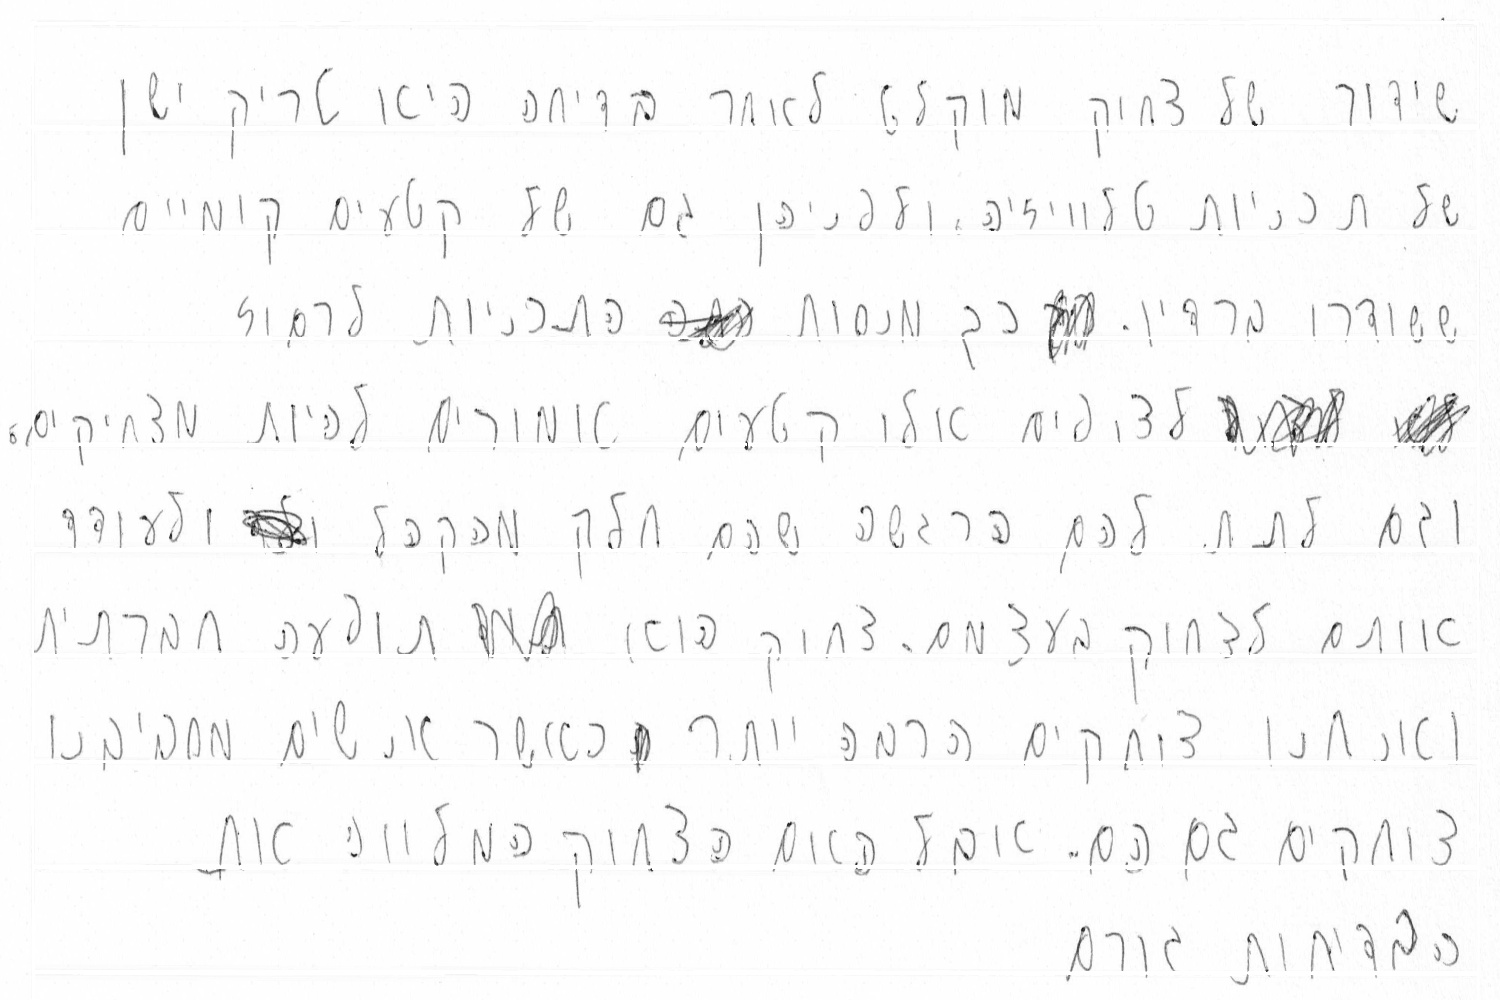 שידור של צחוק מוקלט לאחר בדיחה היא טריק ישן
של תכניות טלוויזיה, ולפניהן גם של קטעים קומיים
ששודרו ברדיו. כך מנסות התכניות לרמוז
לצופים אלו קטעים אמורים להיות מצחיקים,
וגם לתת להם הרגשה שהם חלק מהקהל ולעודד
אותם לצחוק בעצמם. צחוק הוא תופעה חברתית
ואנחנו צוחקים הרבה יותר כאשר אנשים מסביבנו
צוחקים גם הם. אבל האם הצחוק המלווה את
הבדיחות גורם